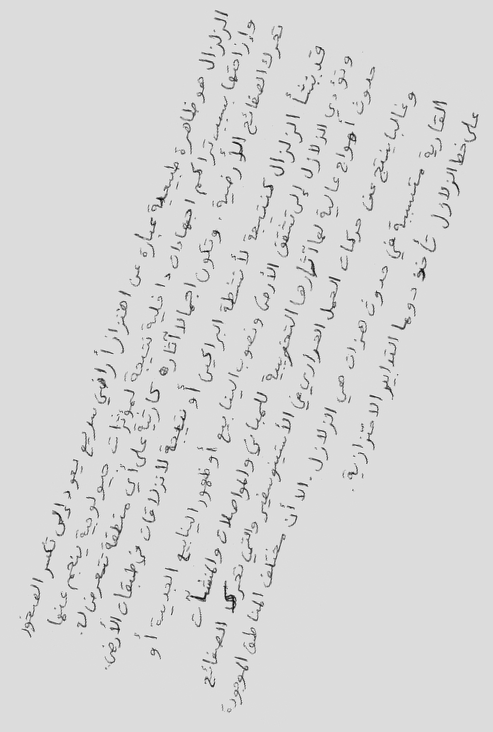 الزلزال هو ظاهرة طبيعية عبارة عن اهتزاز أرضي سريع يعود إلى تكسر الصخور
وإزاحتها بسبب تراكم اجهادات داخلية نتيجة لمؤثرات جيولوجية ينجم عنها
تحرك الصفائح الأرضية. وتكون اجمالا آثاره كارثية على أي منطقة تتعرض له.
قد ينشأ الزلزال كنتيجة لأنشطة البراكين أو نتيجة لأنزلاقات في طبقات الأرض.
وتؤدي الزلازل إلى تشقق الأرض ونضوب الينابيع أو ظهور الينابيع الجديدة أو
حدوث أمواج عالية لها آثارها التخريبية للمباني والمواصلات والمنشآت
وغالبا ينتج عن حركات الحمل الحراري في الأستينوسفير والتي تحرك الصفائح
القارية متسببة في حدوث هزات هي الزلازل. الا أن مختلف المناطق الموجودة
على خط الزلازل تأخذ دوما التدابير الاحترازية.